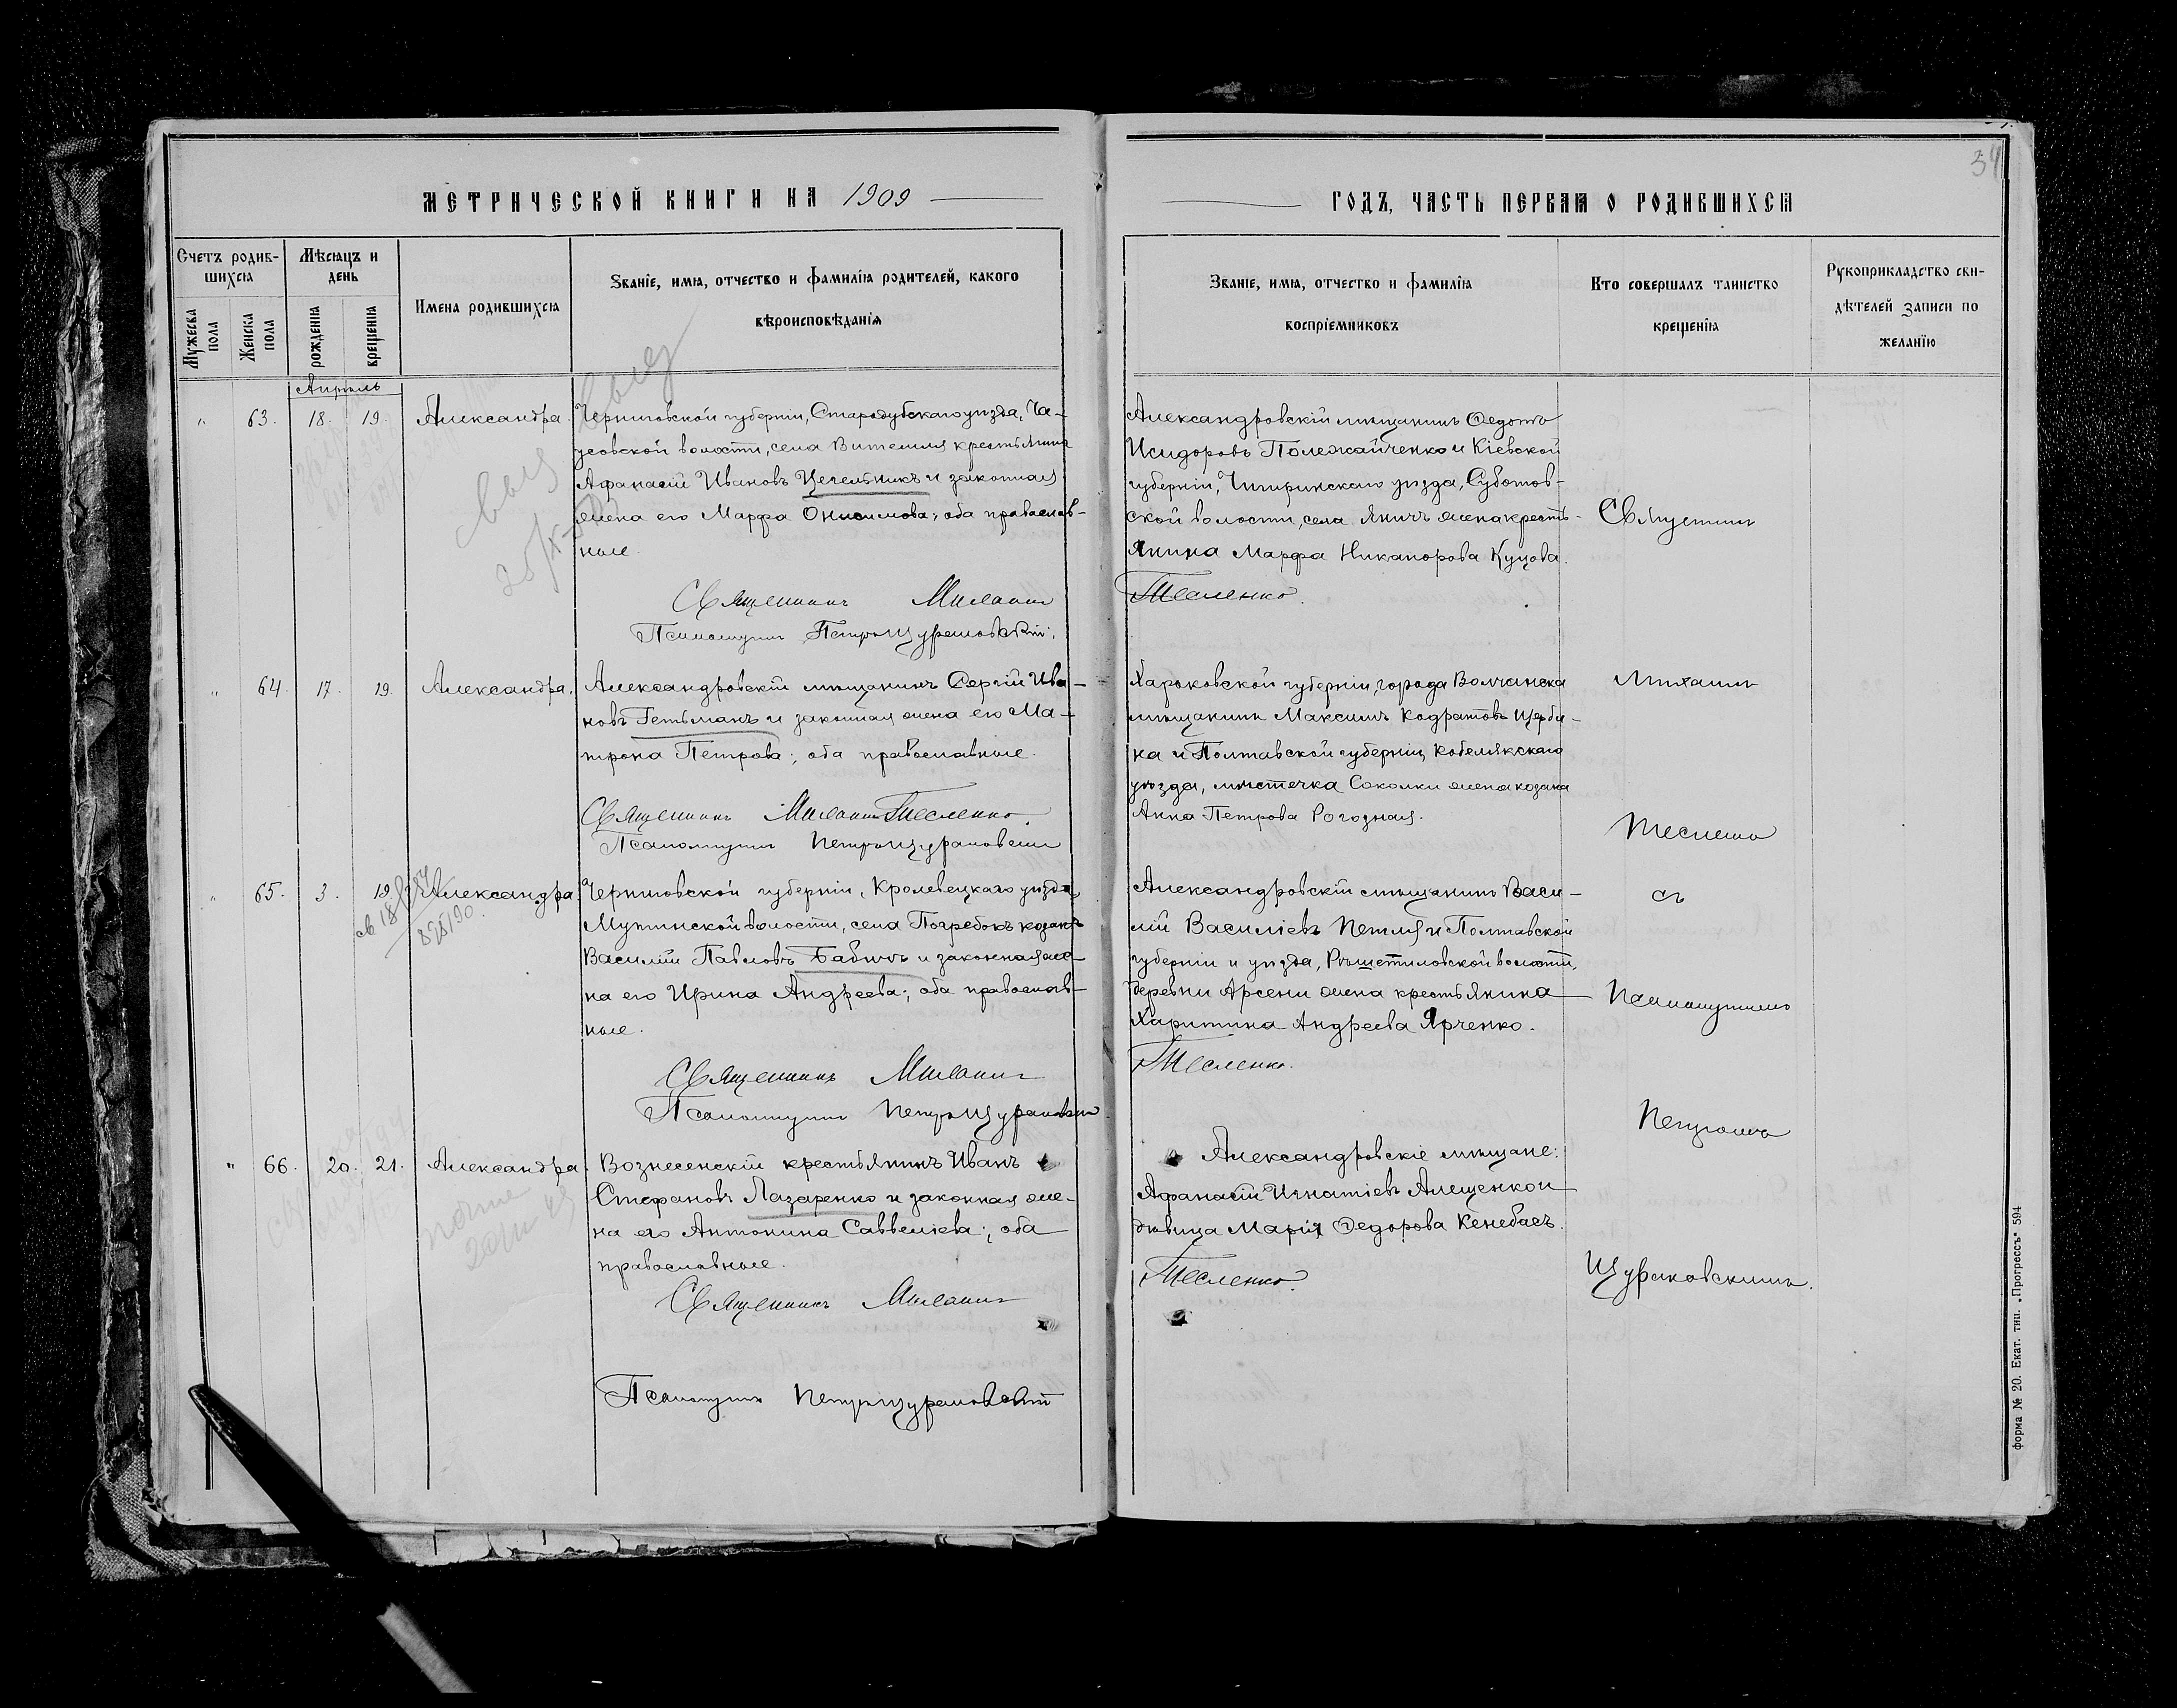 34
МЕТРИЧЕСКОЙ КНИГИ НА 1909
ГОДЪ, ЧАСТЬ ПЕРВАЯ О РОДИВШИХСЯ
Счетъ родив-
шихся
Мужеска
пола
Женска
пола
Мѣсяцъ и
день
рожденія
крещенія
Имена родившихся
Званіе, имя, отчество и фамилія родителей, какого
вѣроисповѣданія
Званіе, имя, отчество и фамилія
воспріемниковъ
Кто совершалъ таинство
крещенія
Рукоприкладство сви-
дѣтелей записи по
желанію
Апрѣль
" 63. 18. 19. Александра.
Черниговской губерніи, Стародубскаго уѣзда, Ча-
усовской волости, села Витемля крестьянинъ
Афанасій Ивановъ Цегельникъ и законная
жена его Марфа Онисимова; оба православ-
ные.
Священникъ Михаилъ
Псаломщикъ Петръ Щураковскій
Александровскій мѣщанинъ Ѳедотъ
Исидоровъ Полежайченко и Кіевской
губерніи, Чигиринскаго уѣзда, Суботов-
ской волости, села жена кресть-
янина Марфа Никанорова Куцова.
Тесленко.
" 64. 17. 19. Александра.
Александровскій мѣщанинъ Сергій Ива-
новъ Гетьманъ и законная жена его Ма-
трона Петрова; оба православные.
Священникъ Михаилъ Тесленко.
Псаломщикъ Петръ Щураковскій
Харьковской губерніи, города Волчанска
мѣщанинъ Максимъ Кодратовъ Щерби-
на и Полтавской губерніи, Кобелякскаго
уѣзда, мѣстечка Соколки жена козака
Анна Петрова Рогозная.
" 65. 3. 19. Александра
Черниговской губерніи, Кролевецкаго уѣзда,
Мутинской волости, села Погребокъ козакъ
Василій Павловъ Бабичъ и законная же-
на его Ирина Андреева; оба православ-
ные.
Священникъ Михаилъ
Псаломщикъ Петръ Щураковскій
Александровскій мѣщанинъ Васи-
лій Василіевъ Петля и Полтавской
губерніи и уѣзда, Рѣшетиловской волости,
деревни Арсени жена крестьянина
Харитина Андреева Ярченко.
Тесленко.
" 66. 20. 21. Александра.
Вознесенскій крестьянинъ Иванъ
Стефановъ Лазаренко и законная же-
на его Антонина Саввеліева; оба
православные.
Священникъ Михаилъ
Псаломщикъ Петръ Щураковскій
Александровскіе мѣщане:
Афанасій Игнатіевъ Алещенко и
дѣвица Марія Ѳедорова Кенебасъ.
Тесленко.
Священникъ
Михаилъ
Тесленко
съ
Псаломщикомъ
Петромъ
Щураковскимъ.
форма № 20. Екат. тип. „Прогрессъ" 594